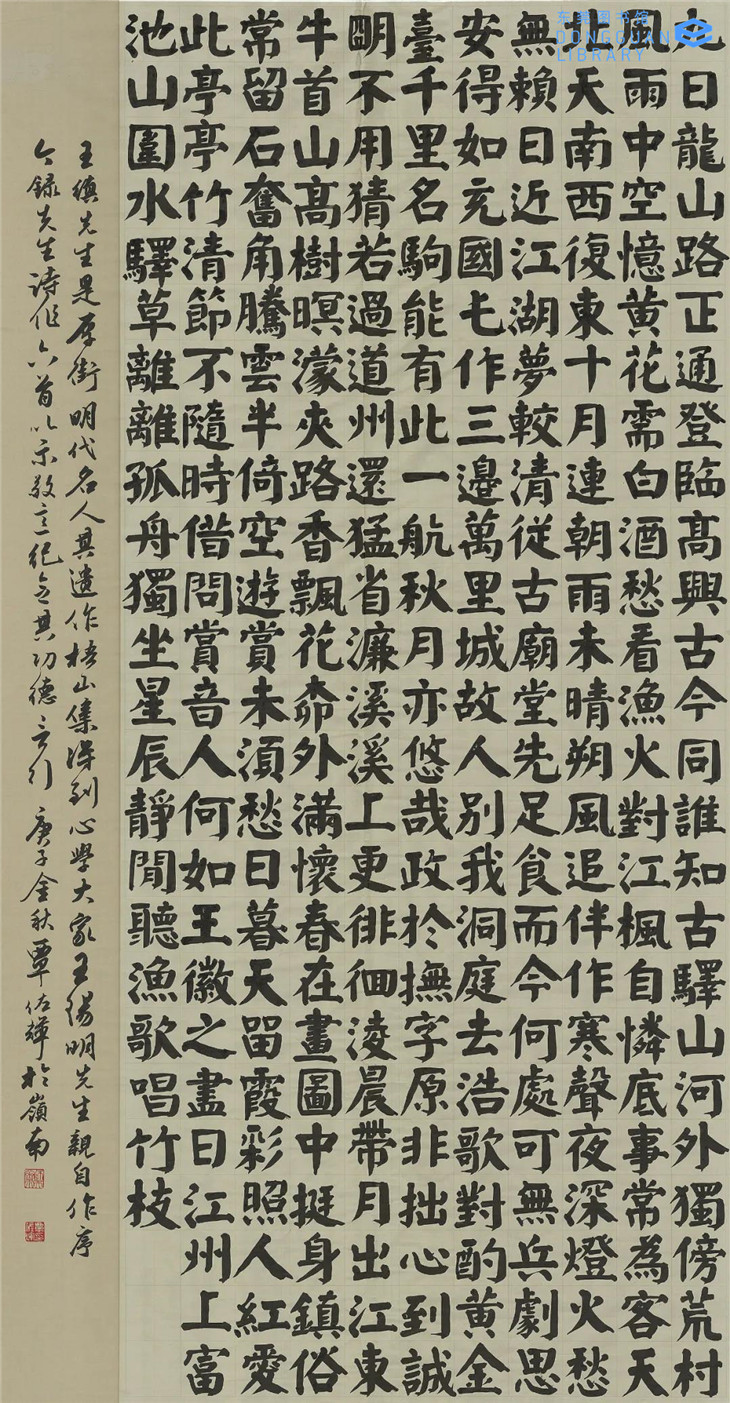 东莞图书馆
DONGGUAN
LIBRARY
九日龍山路正通登臨髙興古今同誰知古驛山河外獨傍荒村
風雨中空憶黄花需白酒愁看漁火對江楓自憐底事常為客天
北天南西復東十月連朝雨未晴朔風追伴作寒聲夜深燈火愁
無賴日近江湖夢較清從古廟堂先足食而今何處可無兵劇思
安得如充國七作三邊萬里城故人别我洞庭去浩歌對酌黄金
臺千里名駒能有此一航秋月亦悠哉政於撫字原非拙心到誠
明不用猜若過道州還猛省濂溪溪上更徘徊淩晨帶月出江東
牛首山髙樹暝濛夾路香飄花外滿懷春在畫圖中挺身鎮俗
常留石奮角騰雲半倚空遊賞未須愁日暮天留霞彩照人紅愛
此亭亭竹清節不隨時借問賞音人何如王徽之盡日江州上富
池山圍水驛草離離孤舟獨坐星辰靜閒聽漁歌唱竹枝
王縝先生是厚街明代名人其遺作梧山集得到心學大家王陽明先生親自作序
今録先生詩作六首以示敬意紀念其功德言行 庚子金秋覃佐輝於嶺南